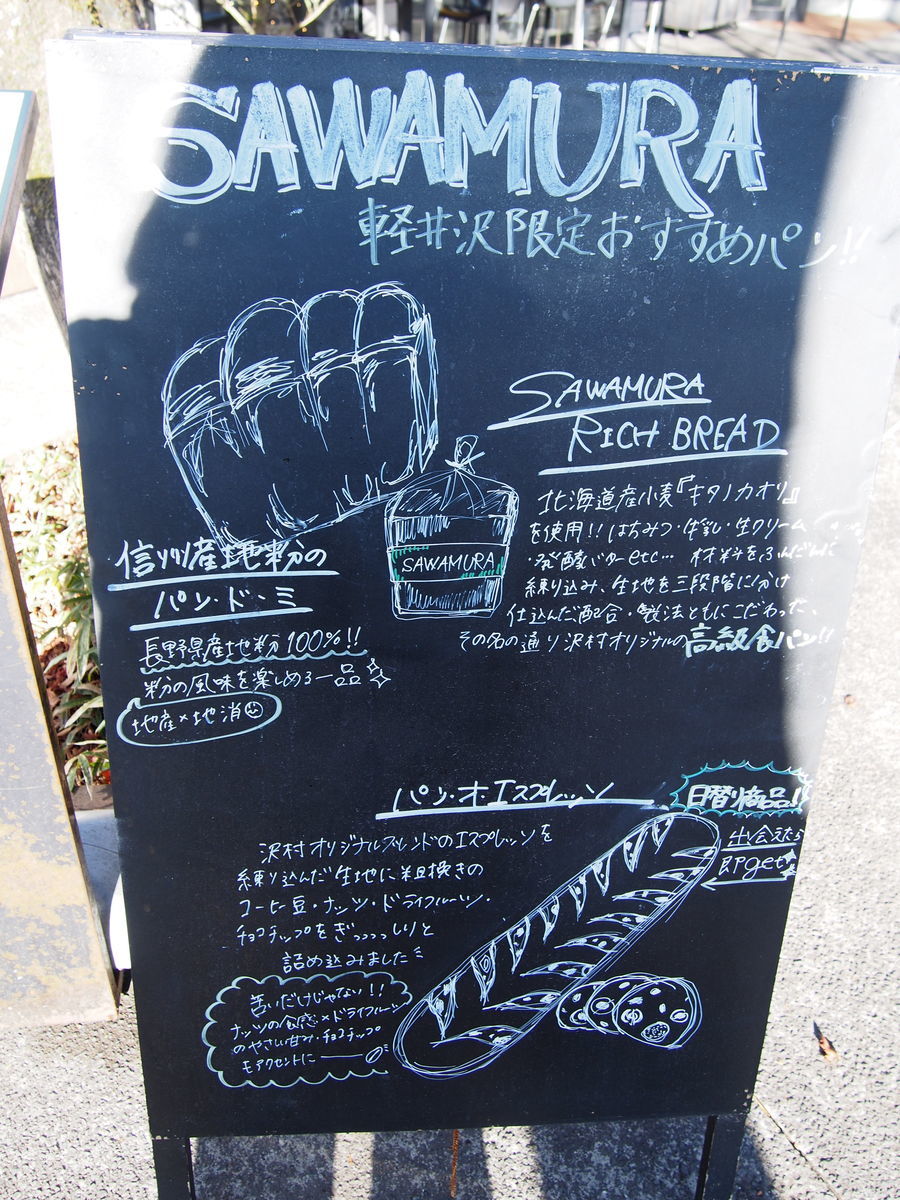 SAWAMURA
軽井沢限定おすすめパン!!
SAWAMURA
RICH BREAD
北海道産小麦『キタノカオリ』
を使用!! はちみつ・牛乳・生クリーム
・発酵バターetc… 材料をふんだんに
練り込み、生地を三段階に分け
仕込んだ配合・製法ともにこだわった、
その名の通り沢村オリジナルの高級食パン!!
SAWAMURA
信州産地粉の
パン・ド・ミ
長野県産地粉100%!!
粉の風味を楽しめる一品
地産×地消
パン・オ・エスプレッソ
日替り商品!!
出会えたら
即get
沢村オリジナルブレンドのエスプレッソを
練り込んだ生地に粗挽きの
コーヒー豆・ナッツ・ドライフルーツ・
チョコチップをぎっっっっしりと
詰め込みました
苦いだけじゃない!!
ナッツの食感×ドライフルーツ
のやさしい甘み・チョコチップ
もアクセントに